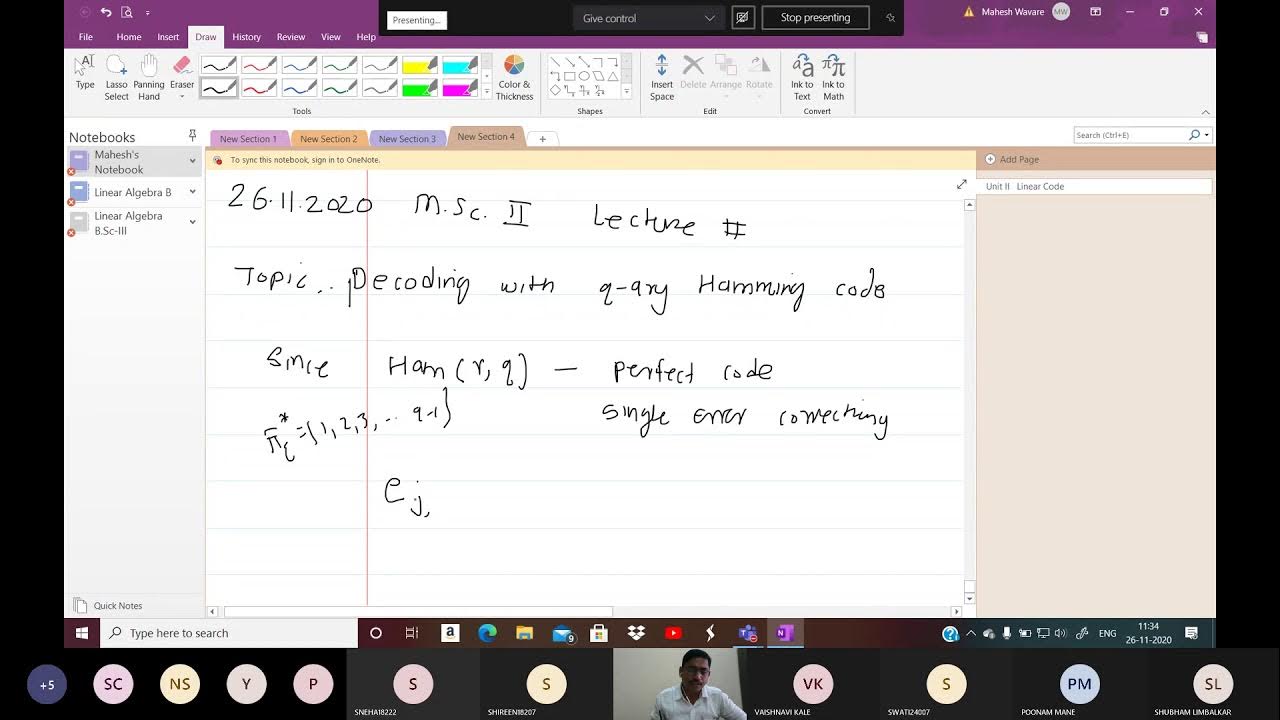 Presenting...
Give control
Stop presenting
Mahesh Wavare MW
File Home Insert Draw History Review View Help
Type Lasso Select Panning Hand Eraser Color & Thickness Insert Space Delete Arrange Rotate Ink to Text Ink to Math
Tools Shapes Edit Convert
Notebooks
New Section 1 New Section 2 New Section 3 New Section 4 +
Search (Ctrl+E)
Mahesh's Notebook
To sync this notebook, sign in to OneNote.
Add Page
Linear Algebra B
Unit II Linear Code
Linear Algebra B.Sc-III
26.11.2020 M.Sc. II Lecture #
Topic.. Decoding with q-ary Hamming code
Since Ham(r, q) — perfect code
single error correcting
= {1, 2, 3, ... q-1}
e j,
Quick Notes
Type here to search
9
ENG
11:34
26-11-2020
+5 SC NS Y P S S VK S PM SL
SNEHA18222 SHIREEN18207 VAISHNAVI KALE SWATI24007 POONAM MANE SHUBHAM LIMBALKAR